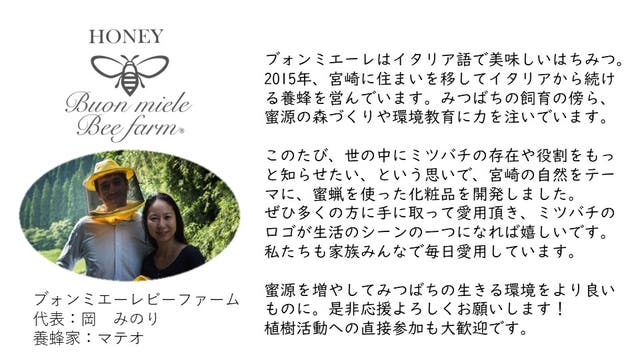 HONEY
Buon miele
Bee farm®
ブォンミエーレビーファーム
代表：岡　みのり
養蜂家：マテオ
ブォンミエーレはイタリア語で美味しいはちみつ。
2015年、宮崎に住まいを移してイタリアから続け
る養蜂を営んでいます。みつばちの飼育の傍ら、
蜜源の森づくりや環境教育に力を注いでいます。
このたび、世の中にミツバチの存在や役割をもっ
と知らせたい、という思いで、宮崎の自然をテー
マに、蜜蝋を使った化粧品を開発しました。
ぜひ多くの方に手に取って愛用頂き、ミツバチの
ロゴが生活のシーンの一つになれば嬉しいです。
私たちも家族みんなで毎日愛用しています。
蜜源を増やしてみつばちの生きる環境をより良い
ものに。是非応援よろしくお願いします！
植樹活動への直接参加も大歓迎です。